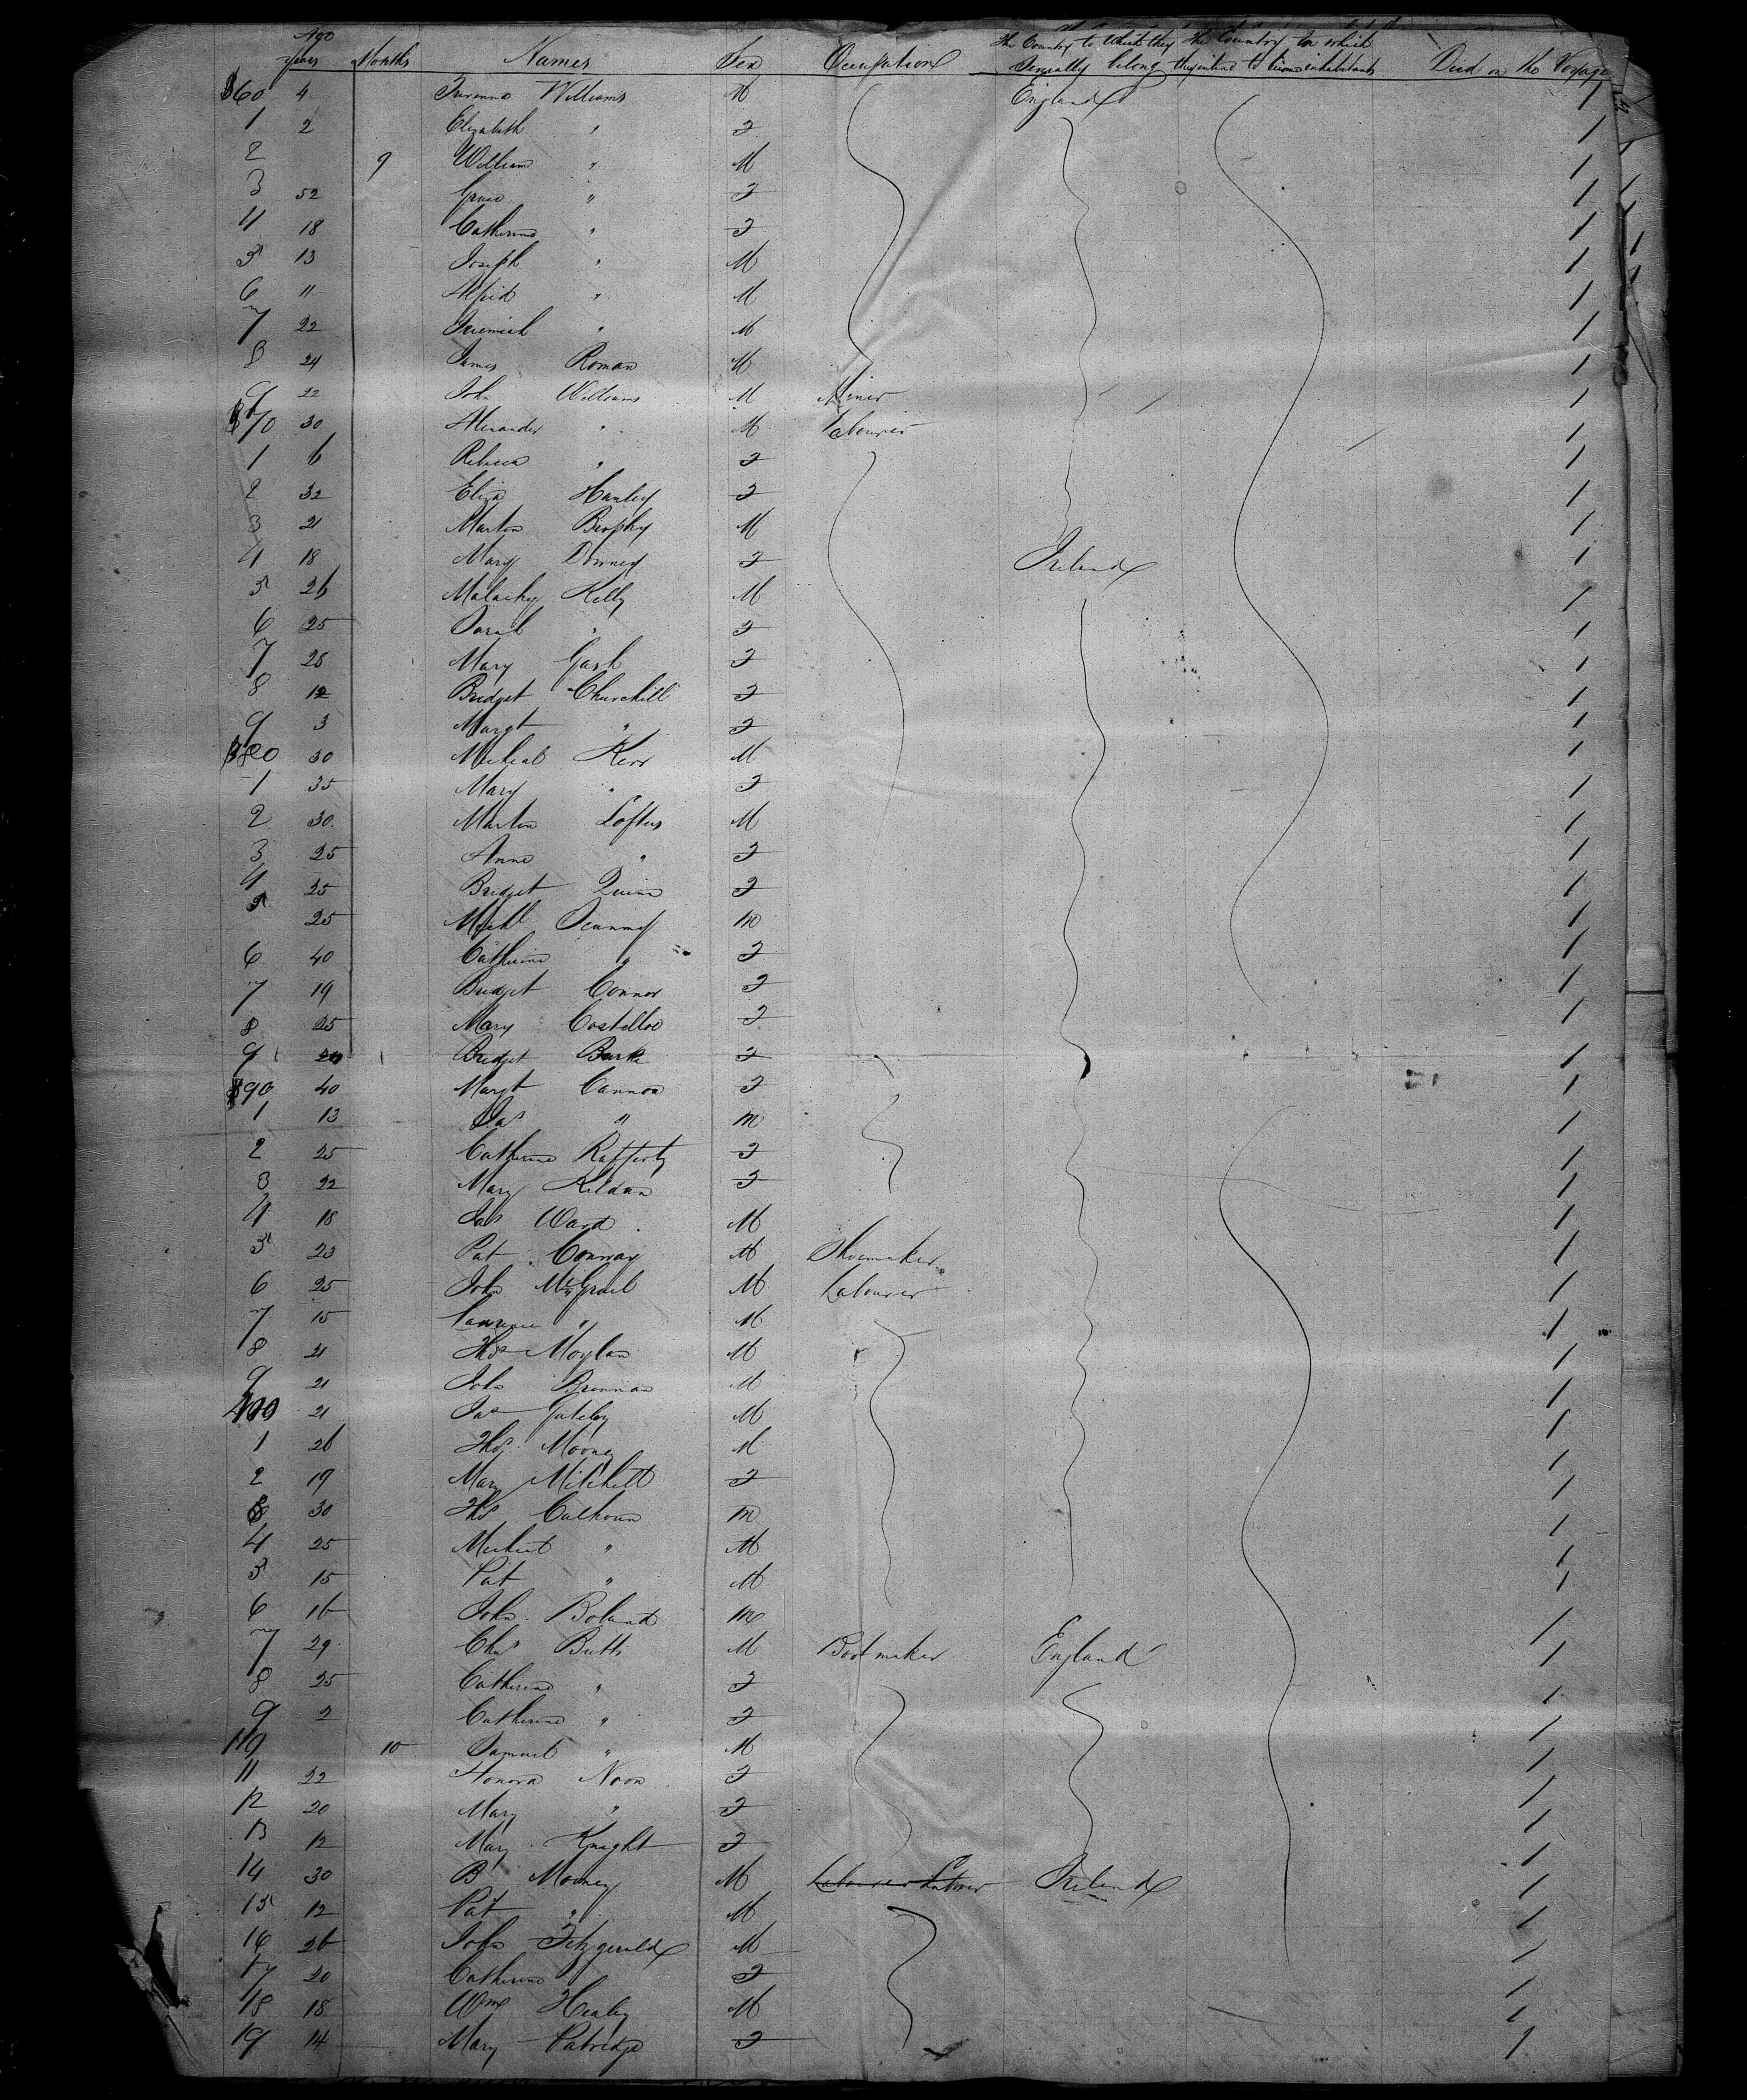 Age
years Months Names Sex Occupation The Country to which they The Country in which Died on the Voyage
Severally belong they intend to become inhabitants
360 4 Williams M England 1
1 2 Elizabeth " F 1
2 9 William " M 1
3 52 Grace " F 1
4 18 Catherine " F 1
5 13 Joseph " M 1
6 11 Alfred " M 1
7 22 Jeremiah " M 1
8 24 James Roman M 1
9 22 John Williams M Miner 1
370 30 Alexander " M Labourer 1
1 6 Rebecca " F 1
2 32 Eliza Hanley F 1
3 21 Martin Brophy M 1
4 18 Mary Downey F Ireland 1
5 26 Malachy Kelly M 1
6 25 Sarah " F 1
7 28 Mary Gash F 1
8 12 Bridget Churchill F 1
9 3 Margt " F 1
380 30 Micheal Kerr M 1
1 35 Mary " F 1
2 30 Martin Loftus M 1
3 25 Anne " F 1
4 25 Bridget Quinn F 1
5 25 Michl M 1
6 40 Catherine " F 1
7 19 Bridget Connor F 1
8 25 Mary Costelloe F 1
9 20 Bridget Burke F 1
390 40 Margt Cannon F 1
1 13 Jas " M 1
2 25 Catherine Rafferty F 1
3 22 Mary Kildun F 1
4 18 Jas Ward M 1
5 23 Pat Conway M Shoemaker 1
6 25 John McGrail M Labourer 1
7 15 Lawrence " M 1
8 21 Thos Moylan M 1
9 21 John Brennan M 1
400 21 Jas Gateley M 1
1 26 Thos Mooney M 1
2 19 Mary Mitchell F 1
3 30 Thos Calhoun M 1
4 25 Micheal " M 1
5 15 Pat " M 1
6 16 John Boland M 1
7 29 Chas Butts M Bootmaker England 1
8 25 Catherine " F 1
9 2 Catherine " F 1
110 10 Samuel " M 1
11 22 Honora Noon F 1
12 20 Mary " F 1
13 12 Mary Knight F 1
14 30 B Mooney M Labourer Ireland 1
15 12 Pat " M 1
16 26 John Fitzgerald M 1
17 20 Catherine F 1
18 18 Wm Healey M 1
19 14 Mary Patridge F 1